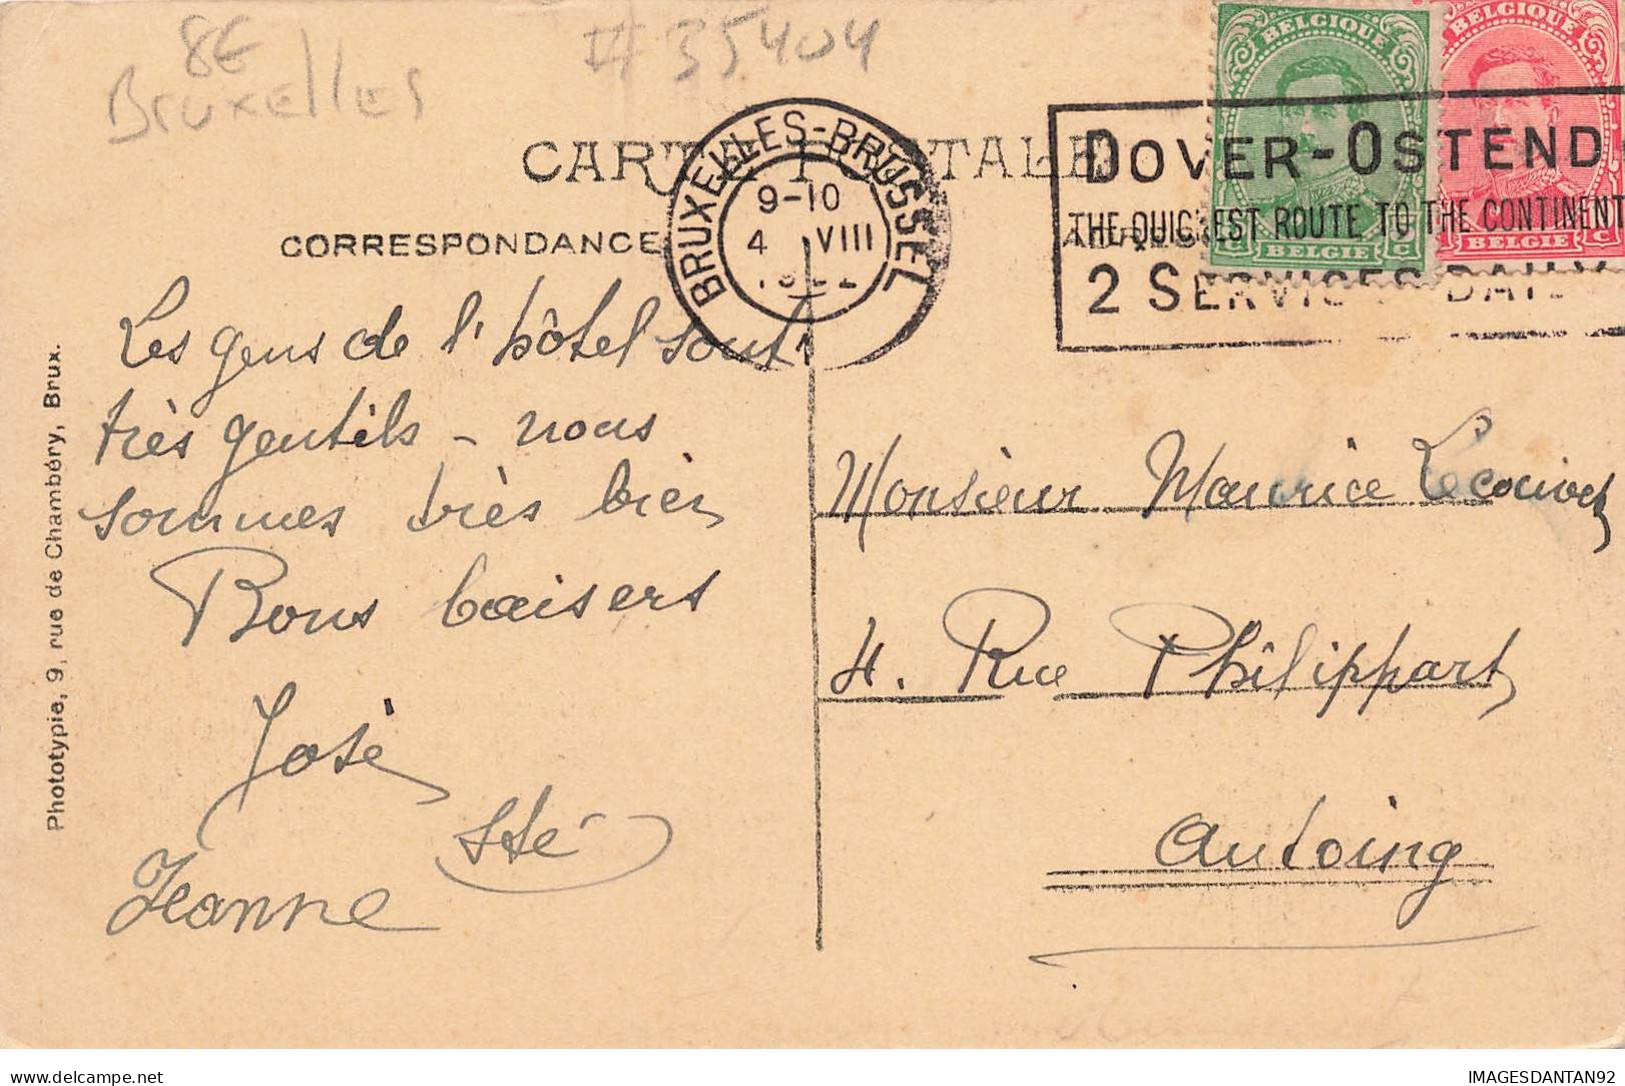 8E
Bruxelles
#35404
CARTE POSTALE
CORRESPONDANCE
BRUXELLES-BRUSSEL
9-10
4 VIII
BELGIQUE
BELGIE
C
BELGIQUE
BELGIE
C
DOVER-OSTEND
THE QUICKEST ROUTE TO THE CONTINENT
2 SERVICES DAILY
Les gens de l'hôtel sont
très gentils - nous
sommes très bien
Bons baisers
José
Sté
Jeanne
Monsieur Maurice Lecouvet
4. Rue Philippart
Antoing
Phototypie, 9, rue de Chambéry, Brux.
IMAGESDANTAN92
delcampe.net